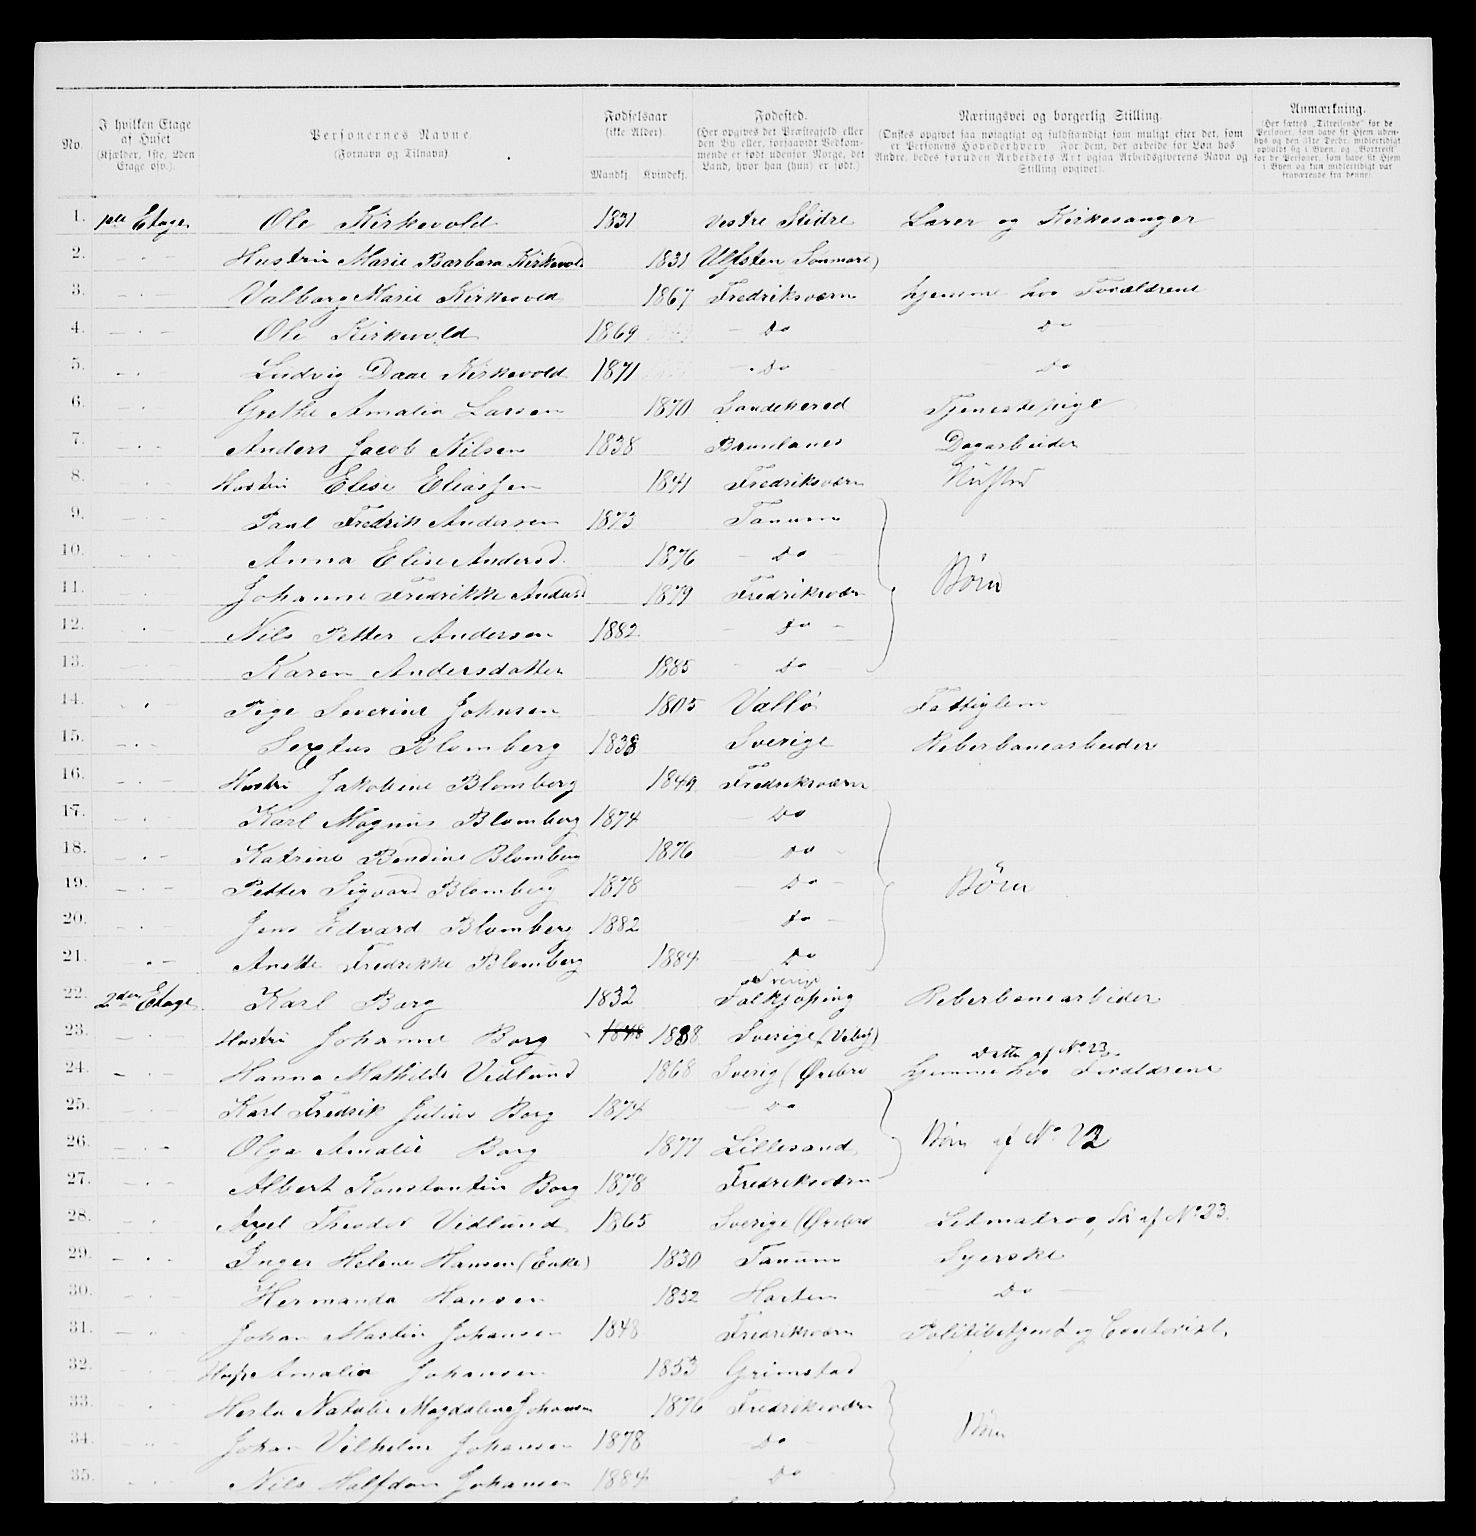 No. I hvilken Etage af Huset (Kjælder, 1ste, 2den Etage osv.). Personernes Navne (Fornavn og Tilnavn) Fødselsaar (ikke Alder). Mandkj. Kvindekj. Fødested. (Her opgives det Præstegjeld eller den By eller, forsaavidt Vedkommende er født udenfor Norge, det Land, hvor han (hun) er født.) Næringsvei og borgerlig Stilling. (Ønskes opgivet saa nøiagtigt og fuldstændigt som muligt efter det, som er Personens Hovederhverv. For dem, der arbeide for Løn hos Andre, bedes foruden Arbeidets Art ogsaa Arbeidsgiverens Navn og Stilling opgivet). Anmærkning. (Her sættes „Tilreisende" for de Personer, som have sit Hjem udenbys og den 31te Decbr. midlertidigt opholdt sig i Byen, og „Bortreist" for de Personer, som have sit Hjem i Byen og kun midlertidigt var fraværende fra denne)
1. 1ste Etage Ole Kirkevold 1831 Vestre Slidre Lærer og Kirkesanger
2. — . — Hustru Marie Barbara Kirkevold 1831 Ulfsten Sønmøre)
3. — . — Valborg Marie Kirkevold 1867 Fredriksværn hjemme hos Forældrene
4. — . — Ole Kirkevold 1869 — Do — Do
5. — . — Ludvig Daae Kirkevold 1871 — Do — Do
6. — . — Grethe Amalia Larsen 1870 Sandeherred Tjenestepige
7. — . — Anders Jacob Nilsen 1838 Brunlanes Dagarbeider
8. — . — Hustru Elise Eliassen 1841 Fredriksværn
9. — . — Paul Fredrik Andersen 1873 Tanum
10. — . — Anna Elise Andersd. 1876 — Do — Børn
11. — . — Johanne Fredrikke Andersd 1879 Fredriksværn
12. — . — Nils Petter Andersen 1882 — Do —
13. — . — Karen Andersdatter 1885 — Do —
14. — . Pige Severine Johnsen 1805 Vallø Fattiglem
15. — . — Sextus Blomberg 1838 Sverige Reberbanearbeider
16. — . — Hustru Jakobine Blomberg 1849 Fredriksværn
17. — . — Karl Magnus Blomberg 1874 — Do
18. — . — Katrine Bendine Blomberg 1876 — Do —
19. — . — Petter Sigvard Blomberg 1878 — Do — Børn
20. — . — Jens Edvard Blomberg 1882 — Do —
21. — . — Anette Fredrikke Blomberg 1884 Do
22. 2den Etage Karl Borg 1832 Sverige Falkjøping Reberbanearbeider
23. — . — Hustru Johanne Borg 1848 1838 Sverige (Veby)
24. — . — Hanna Mathilde Vidlund 1868 Sverig (Ørebro Datter af No 23 hjemme hos Forældrene
25. — . — Karl Fredrik Julius Borg 1874 — Do
26. — . — Olga Amalie Borg 1877 Lillesand Børn af No 23
27. — . — Albert Konstantin Borg 1878 Fredriksværn
28. — . — Axel Theodor Vidlund 1865 Sverige (Ørebro Letmatros, Søn af No 23.
29. — . — Inger Helene Hansen (Enke) 1830 Tanum Syerske
30. — . — Hermanda Hansen 1832 Horten — Do —
31. — . — Johan Martin Johansen 1848 Fredriksværn Politibetjent og
32. — . — Amalia Johansen 1853 Grimstad
33. — . — Herta Natalie Magdalene Johansen 1876 Fredriksværn
34. — . — Johan Vilhelm Johansen 1878 Do — Børn
35. — . — Nils Halfdan Johansen 1884 Do